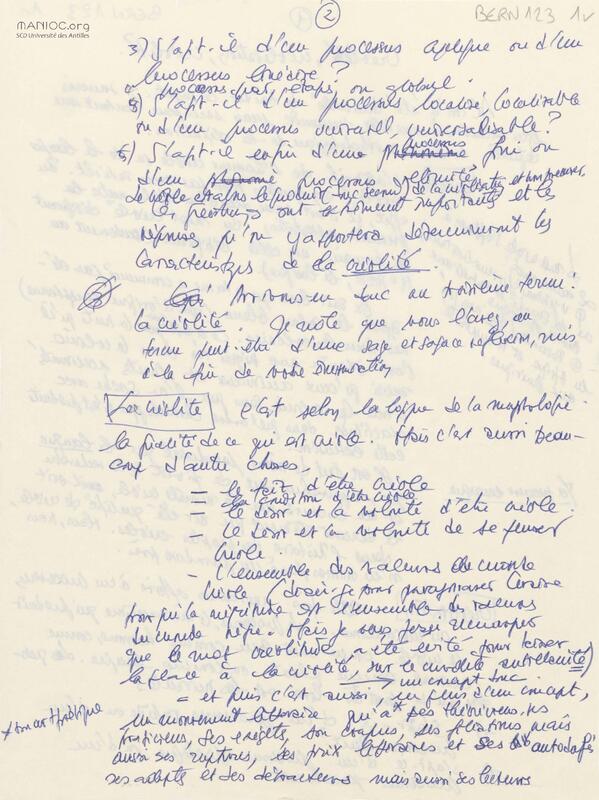 MANIOC.org
SCD Université des Antilles
2
BERN 123 1v
3) S'agit-il d'un processus ou d'un
processus linéaire ?
processus par étapes, ou global.
S'agit-il d'un processus localisé, localisable
ou d'un processus universel, universalisable ?
5) S'agit-il enfin d'une phénomène processus fini ou
d'un processus
Les questions sont importantes et les
réponses qu'on y apportera détermineront les
caractéristiques de la créolité.
Arrivons-en donc au troisième terme :
la créolité. Je note que vous l'avez, au
terme peut-être d'une sage et sagace réflexion, mis
à la fin de votre énumération
La créolité c'est selon la logique de la morphologie
la qualité de ce qui est créole. Mais c'est aussi beau-
coup d'autres choses.
= le fait d'être créole
la condition d'être créole
= le désir et la volonté d'être créole.
- le désir et la volonté de se penser
créole.
- l'ensemble des valeurs du monde
créole (dirai-je pour paraphraser Césaire
pour qui la négritude est l'ensemble des valeurs
du monde nègre. Mais je vous ferai remarquer
que le mot créolitude a été évité pour laisser
la place à la créolité, sur le modèle antillanité)
un concept donc.
et puis c'est aussi, en plus d'un concept,
un mouvement littéraire qui a* ses théoriciens, ses
praticiens, ses exégètes, son corpus, ses filiations mais
aussi ses ruptures, ses prix littéraires et ses autodafés
ses adeptes et ses détracteurs mais aussi ses lecteurs
* son art poétique